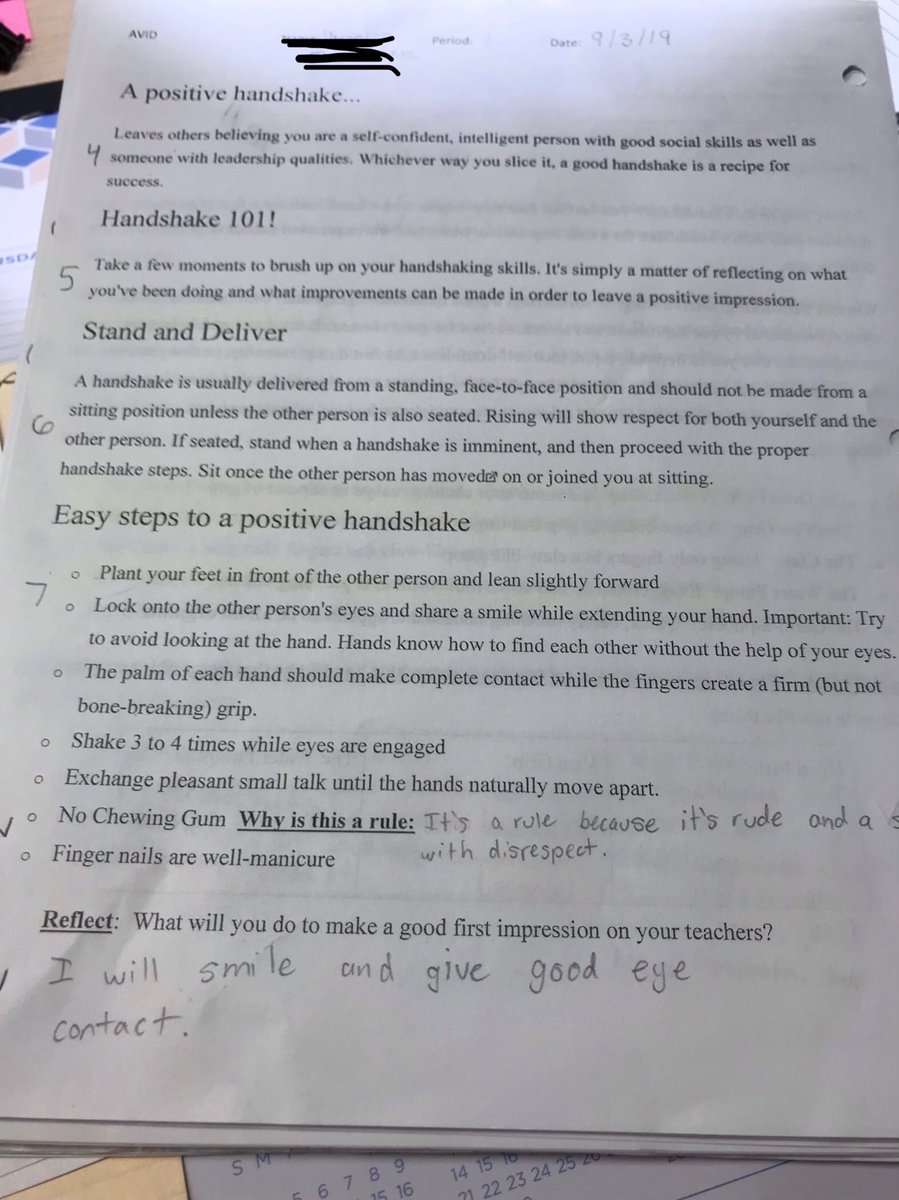 AVID Period: Date: 9/3/19
A positive handshake...
Leaves others believing you are a self-confident, intelligent person with good social skills as well as
4 someone with leadership qualities. Whichever way you slice it, a good handshake is a recipe for
success.
Handshake 101!
5 Take a few moments to brush up on your handshaking skills. It's simply a matter of reflecting on what
you've been doing and what improvements can be made in order to leave a positive impression.
Stand and Deliver
A handshake is usually delivered from a standing, face-to-face position and should not be made from a
6 sitting position unless the other person is also seated. Rising will show respect for both yourself and the
other person. If seated, stand when a handshake is imminent, and then proceed with the proper
handshake steps. Sit once the other person has moved on or joined you at sitting.
Easy steps to a positive handshake
7 Plant your feet in front of the other person and lean slightly forward
Lock onto the other person's eyes and share a smile while extending your hand. Important: Try
to avoid looking at the hand. Hands know how to find each other without the help of your eyes.
The palm of each hand should make complete contact while the fingers create a firm (but not
bone-breaking) grip.
Shake 3 to 4 times while eyes are engaged
Exchange pleasant small talk until the hands naturally move apart.
No Chewing Gum Why is this a rule: It's a rule because it's rude and a
with disrespect.
Finger nails are well-manicure
Reflect: What will you do to make a good first impression on your teachers?
I will smile and give good eye
contact.
S M
6 7 8 9
15 16
14 15 16
21 22 23 24 25 26